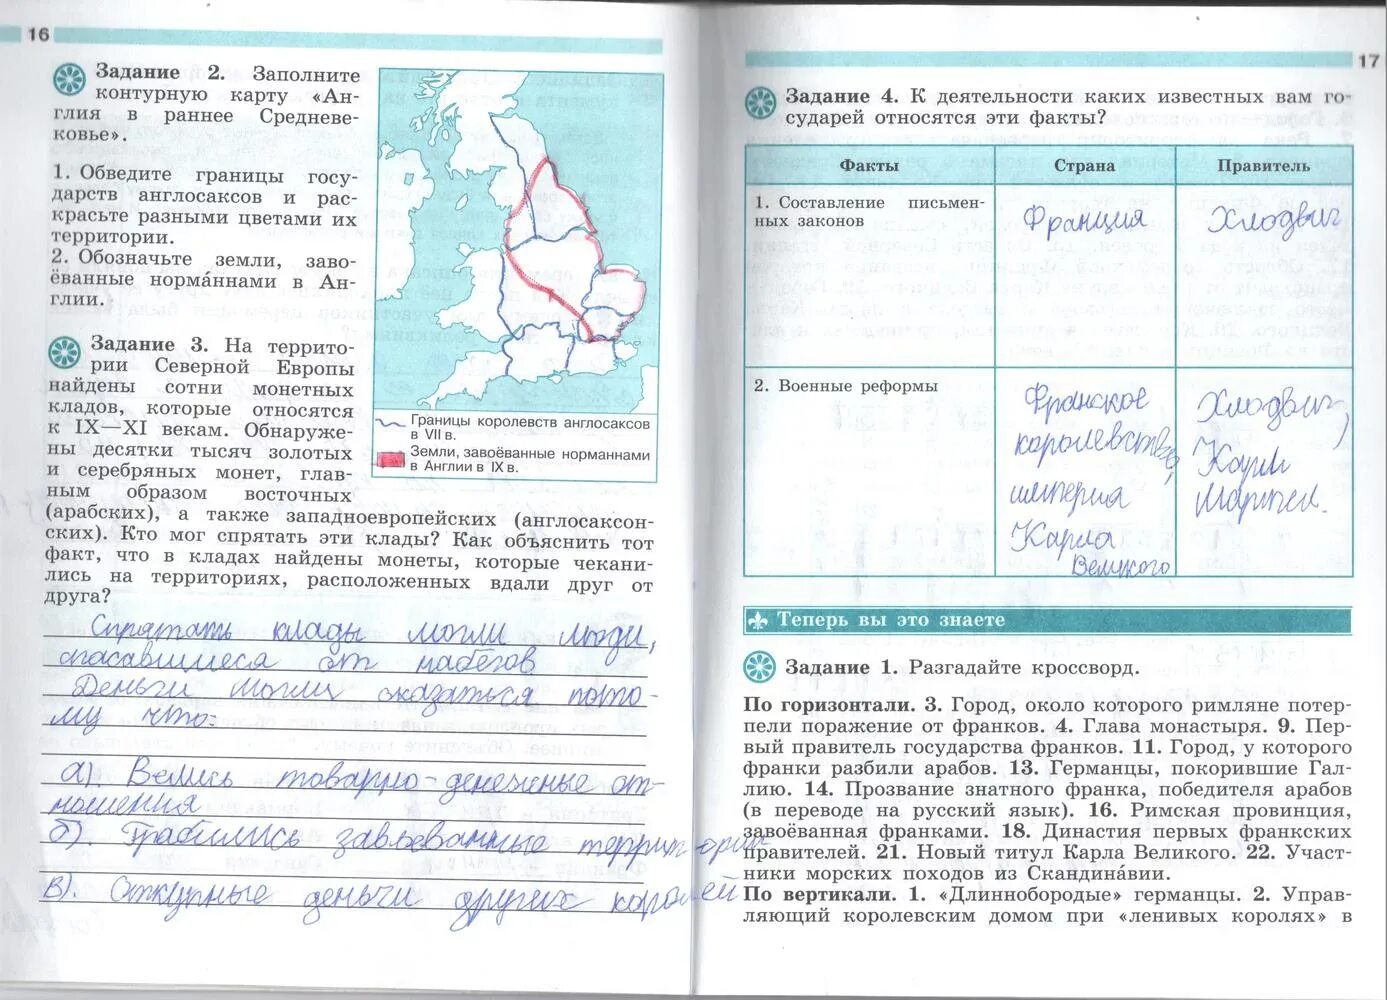 16
Задание 2. Заполните
контурную карту «Ан-
глия в раннее Средневе-
ковье».
1. Обведите границы госу-
дарств англосаксов и рас-
красьте разными цветами их
территории.
2. Обозначьте земли, заво-
ёванные норма́ннами в Ан-
глии.
Границы королевств англосаксов
в VII в.
Земли, завоёванные норманнами
в Англии в IX в.
Задание 3. На террито-
рии Северной Европы
найдены сотни монетных
кладов, которые относятся
к IX—XI векам. Обнаруже-
ны десятки тысяч золотых
и серебряных монет, глав-
ным образом восточных
(арабских), а также западноевропейских (англосаксон-
ских). Кто мог спрятать эти клады? Как объяснить тот
факт, что в кладах найдены монеты, которые чекани-
лись на территориях, расположенных вдали друг от
друга?
Спрятать клады могли люди,
спасавшиеся от набегов
Деньги могли оказаться пото-
му что:
а). Велись товарно-денежные от-
ношения
б). Грабились завоеванные территории
в). Откупные деньги других королей
17
Задание 4. К деятельности каких известных вам го-
сударей относятся эти факты?
Факты Страна Правитель
1. Составление письмен-
ных законов
Франция Хлодвиг
2. Военные реформы
Франское
королевство,
империя
Карла
Великого
Хлодвиг,
Карл
Мартел.
Теперь вы это знаете
Задание 1. Разгадайте кроссворд.
По горизонтали. 3. Город, около которого римляне потер-
пели поражение от франков. 4. Глава монастыря. 9. Пер-
вый правитель государства франков. 11. Город, у которого
франки разбили арабов. 13. Германцы, покорившие Гал-
лию. 14. Прозвание знатного франка, победителя арабов
(в переводе на русский язык). 16. Римская провинция,
завоёванная франками. 18. Династия первых франкских
правителей. 21. Новый титул Карла Великого. 22. Участ-
ники морских походов из Скандина́вии.
По вертикали. 1. «Длиннобородые» германцы. 2. Управ-
ляющий королевским домом при «ленивых королях» в